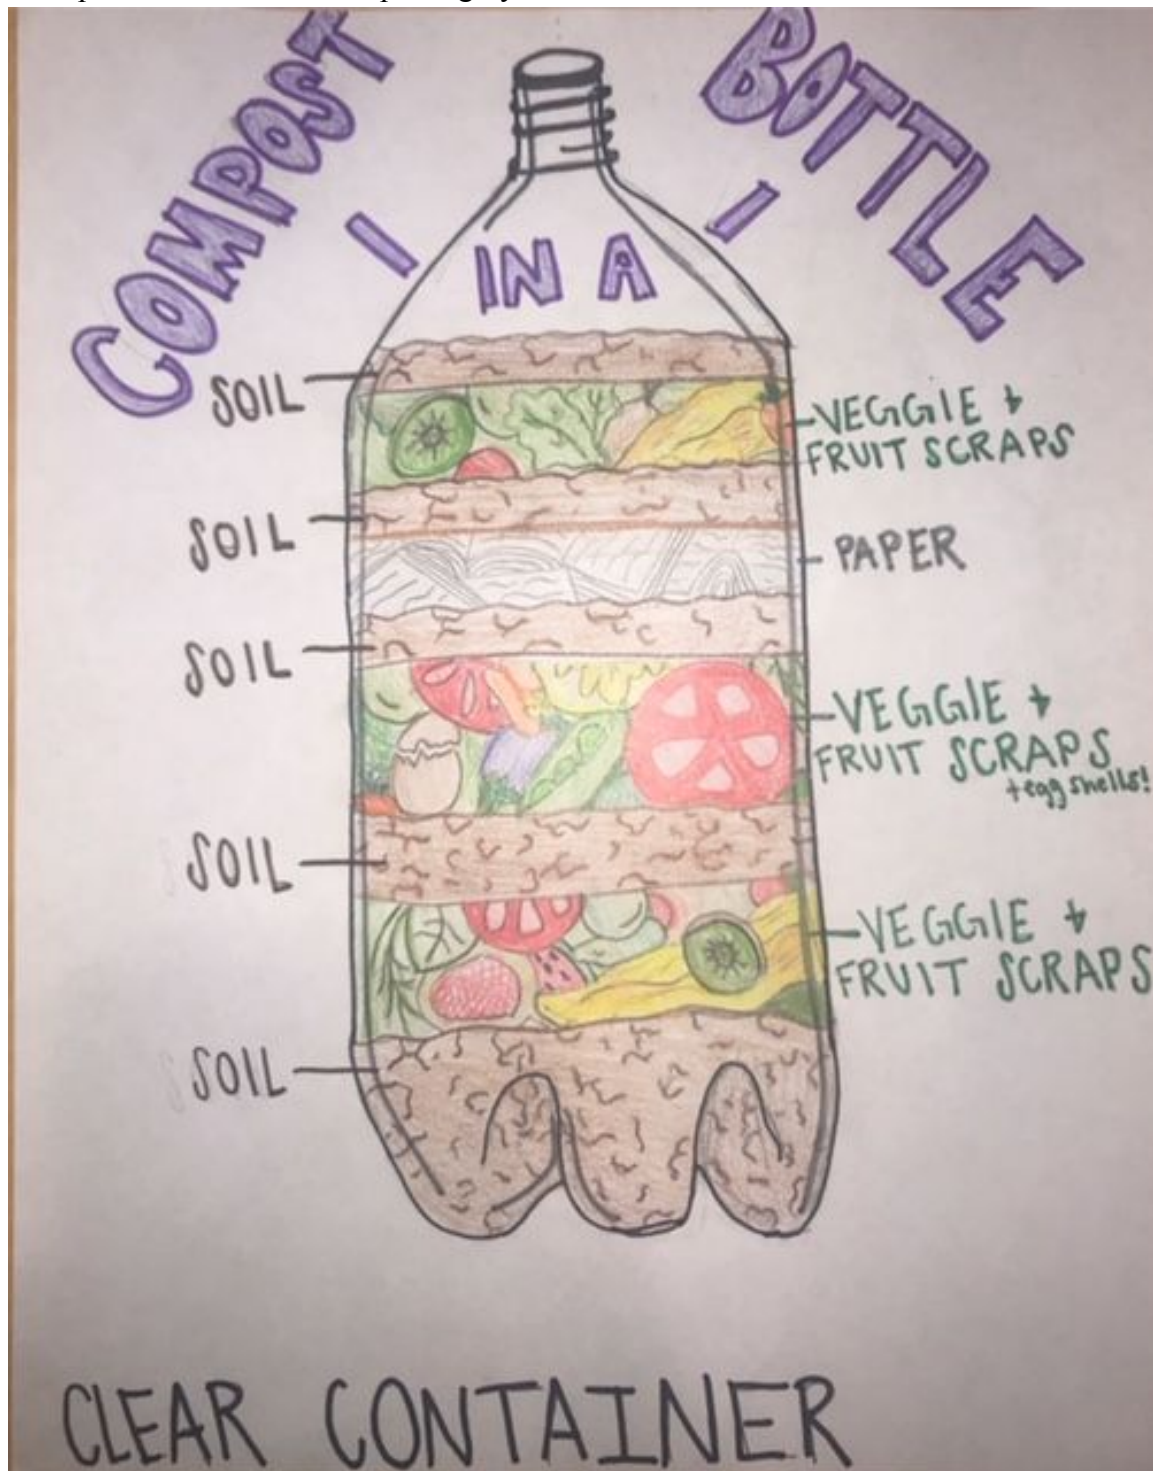 COMPOST
- IN A -
BOTTLE
SOIL
VEGGIE +
FRUIT SCRAPS
SOIL
PAPER
SOIL
VEGGIE +
FRUIT SCRAPS
+egg shells!
SOIL
VEGGIE +
FRUIT SCRAPS
SOIL
CLEAR CONTAINER